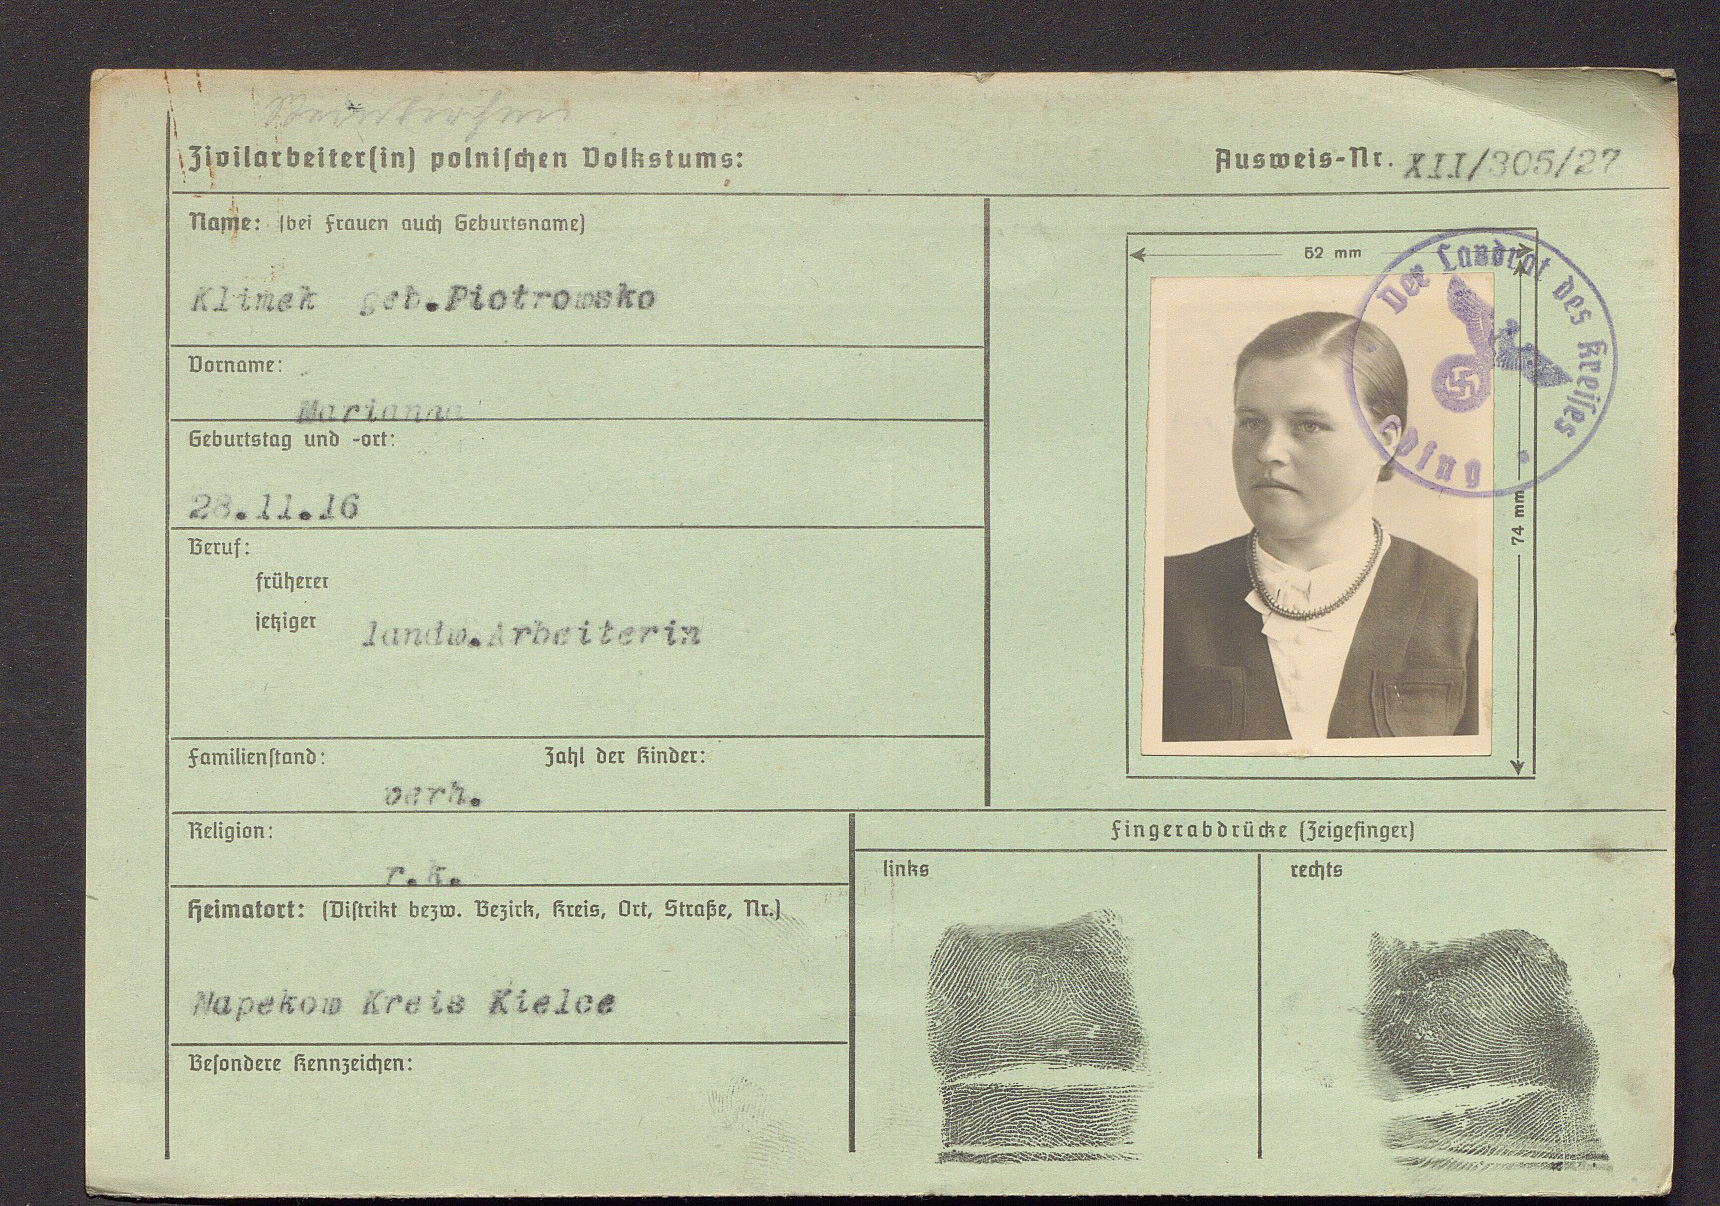 Zivilarbeiter(in) polnischen Volkstums:
Ausweis-Nr. XII/305/27
Name: (bei Frauen auch Geburtsname)
Klimek geb.Piotrowsko
Vorname:
Marianna
Geburtstag und -ort:
28.11.16
Beruf:
früherer
jetziger landw.Arbeiterin
Familienstand: Zahl der Kinder:
verh.
Religion:
r.k.
Heimatort: (Distrikt bezw. Bezirk, Kreis, Ort, Straße, Nr.)
Napekow Kreis Kielce
Besondere Kennzeichen:
52 mm
74 mm
Der Landrat des Kreises
Fingerabdrücke (Zeigefinger)
links
rechts